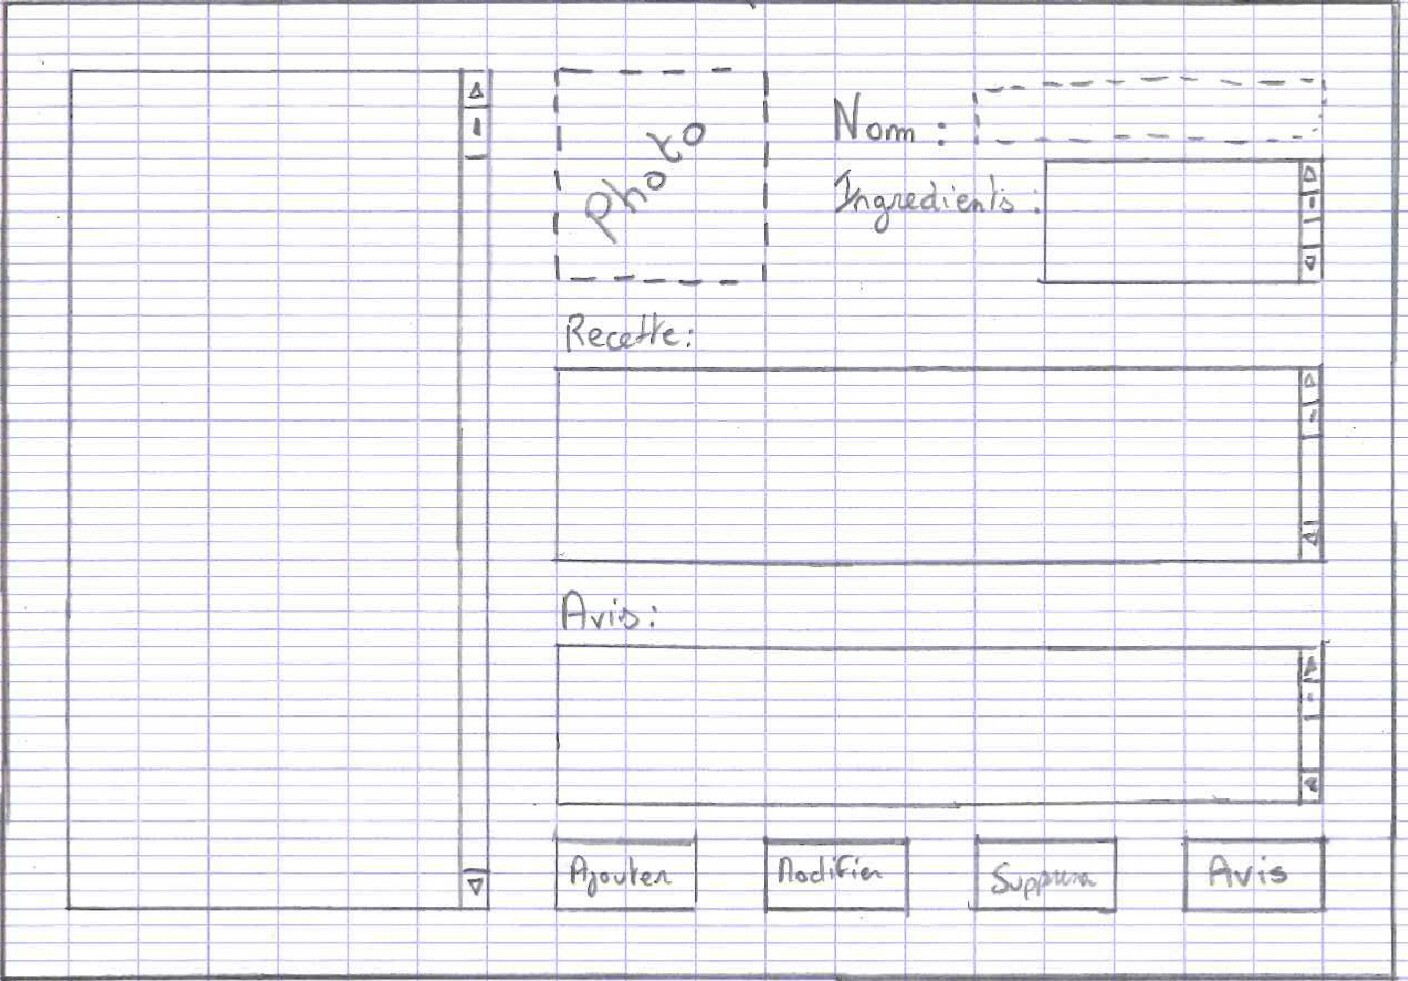 Photo
Nom :
Ingredients :
Recette:
Avis:
Ajouter
Modifier
Avis